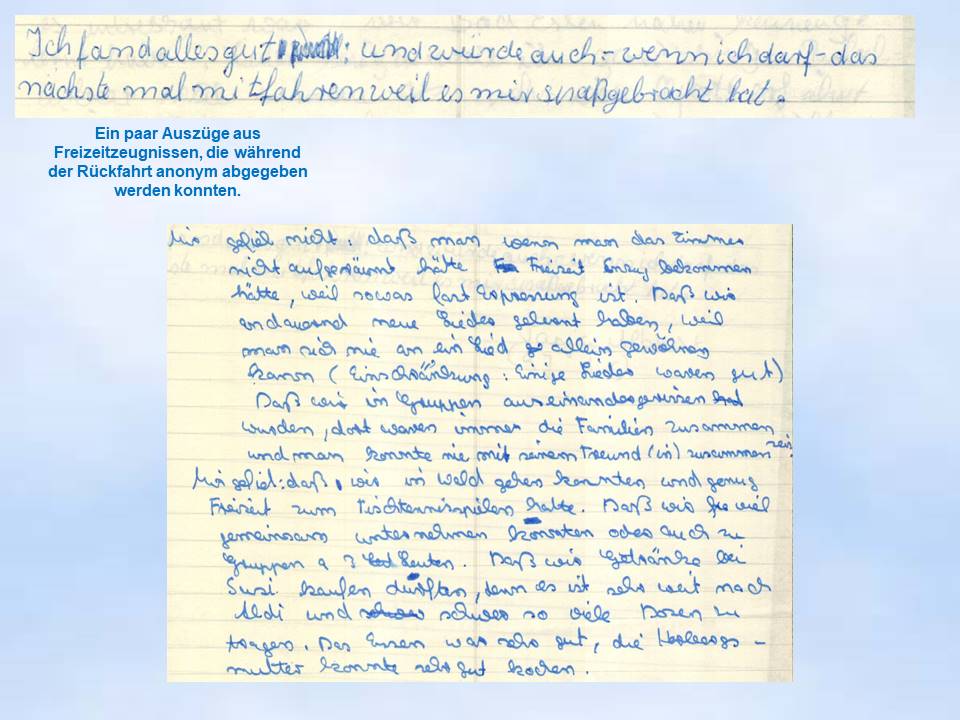 Ich fand alles gut und würde auch - wenn ich darf - das
nächste mal mitfahren weil es mir spaß gebracht hat.
Ein paar Auszüge aus
Freizeitzeugnissen, die während
der Rückfahrt anonym abgegeben
werden konnten.
Mir gefiel nicht daß man, wenn man das Zimmer
nicht aufgeräumt hätte Freizeit bekommen
hätte, weil sowas fast Erpressung ist. Daß wir
andauernd neue Lieder gelernt haben, weil
man sich nie an ein Lied allein gewöhnen
kann (Einschränkung: Einige Lieder waren gut)
Daß wir in Gruppen auseinandergerissen
wurden, dort waren immer die Familien zusammen
und man konnte nie mit seinem Freund (in) zusammen sein.
Mir gefiel: daß wir in Wald gehen konnten und genug
Freizeit zum Tischtennisspielen hatte. Daß wir viel
gemeinsam unternehmen konnten oder auch zu
Gruppen a 3 Leuten. Daß wir Getränke bei
Susi kaufen durften, denn es ist sehr weit nach
Aldi und schwer so viele Dosen zu
tragen. Das Essen war sehr gut, die Herbergs-
mutter konnte sehr gut kochen.